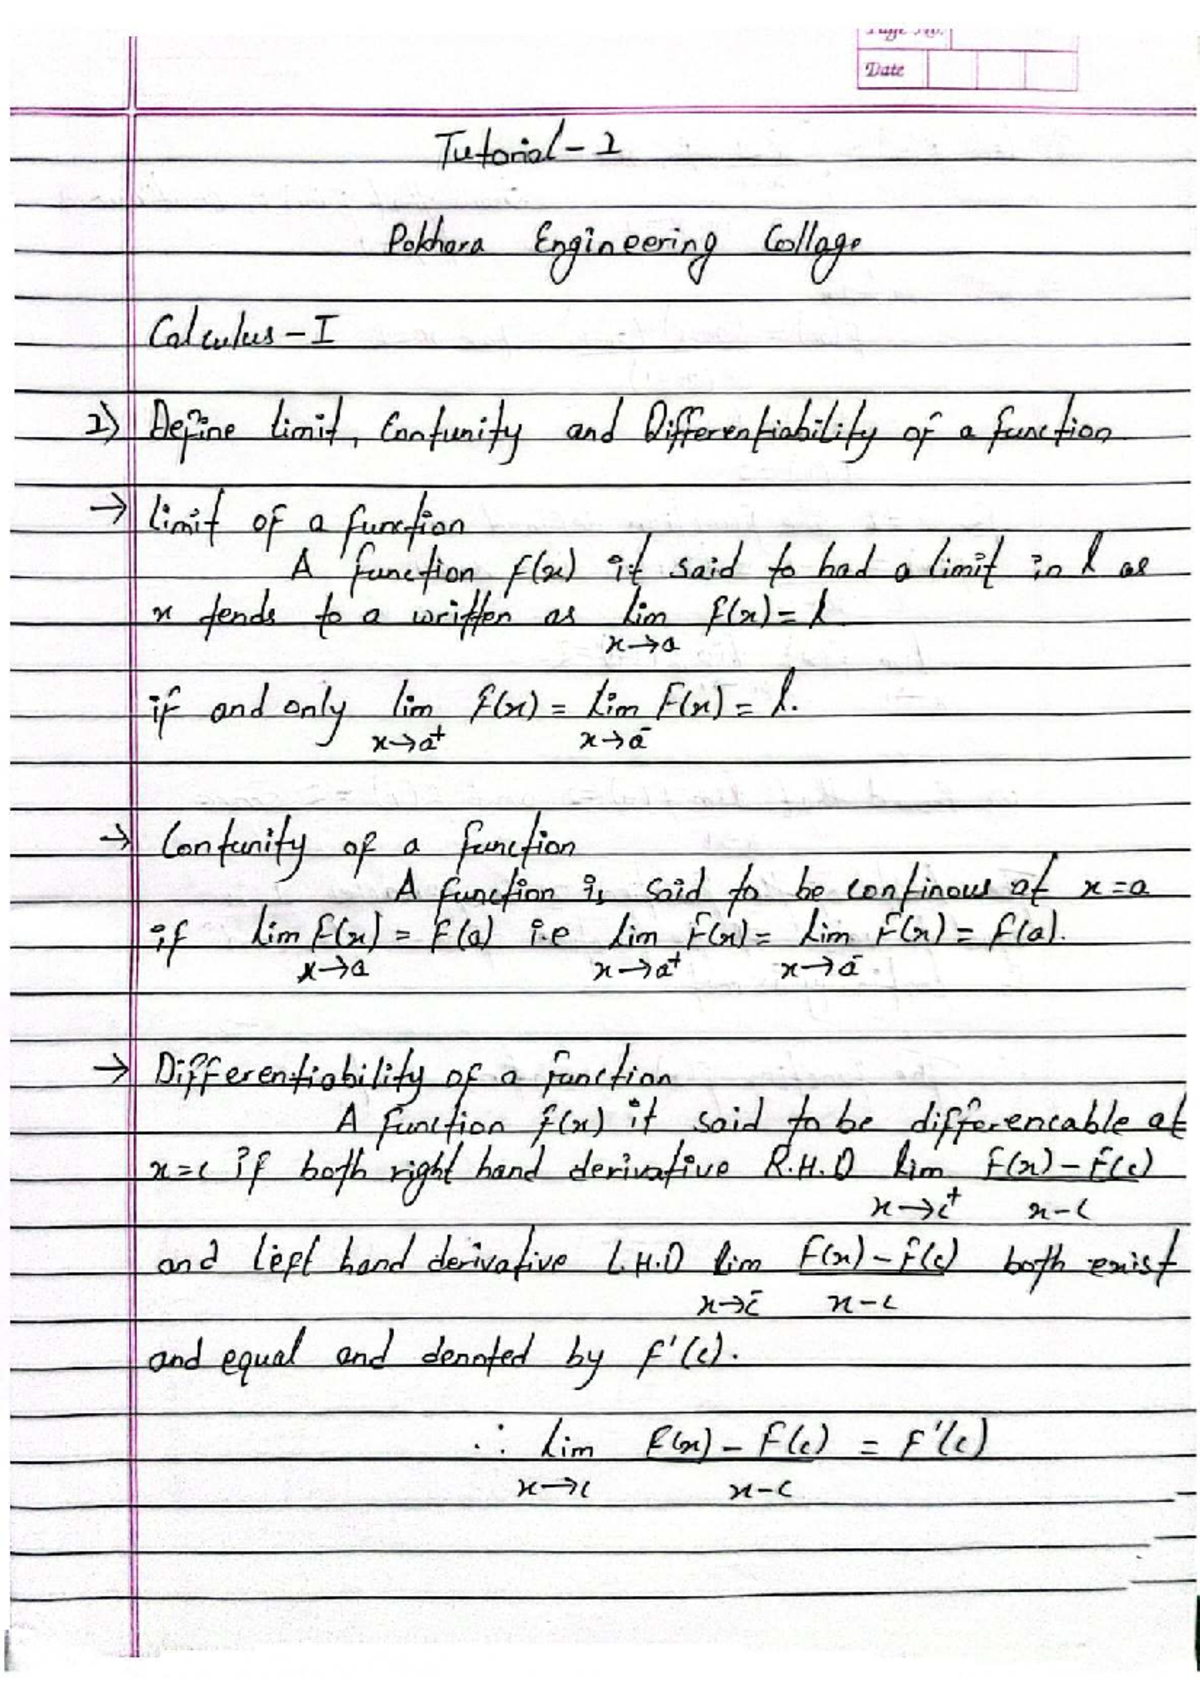 Page No.
Date
Tutorial - 1
Pokhara Engineering Collage
Calculus - I
1) Define limit, Contunity and Differentiability of a function
→ limit of a function
A function f(x) it said to had a limit in l as
x tends to a written as lim f(x) = l
x→a
if and only lim f(x) = lim f(x) = l.
x→a⁺ x→a⁻
→ Contunity of a function
A function is said to be continous at x = a
if lim f(x) = f(a) i.e lim f(x) = lim f(x) = f(a).
x→a x→a⁺ x→a⁻
→ Differentiability of a function
A function f(x) it said to be differencable at
x = c if both right hand derivative R.H.D lim f(x) - f(c)
x→c⁺ x - c
and left hand derivative L.H.D lim f(x) - f(c) both exist
x→c⁻ x - c
and equal and denoted by f'(c).
∴ lim f(x) - f(c) = f'(c)
x→c x - c